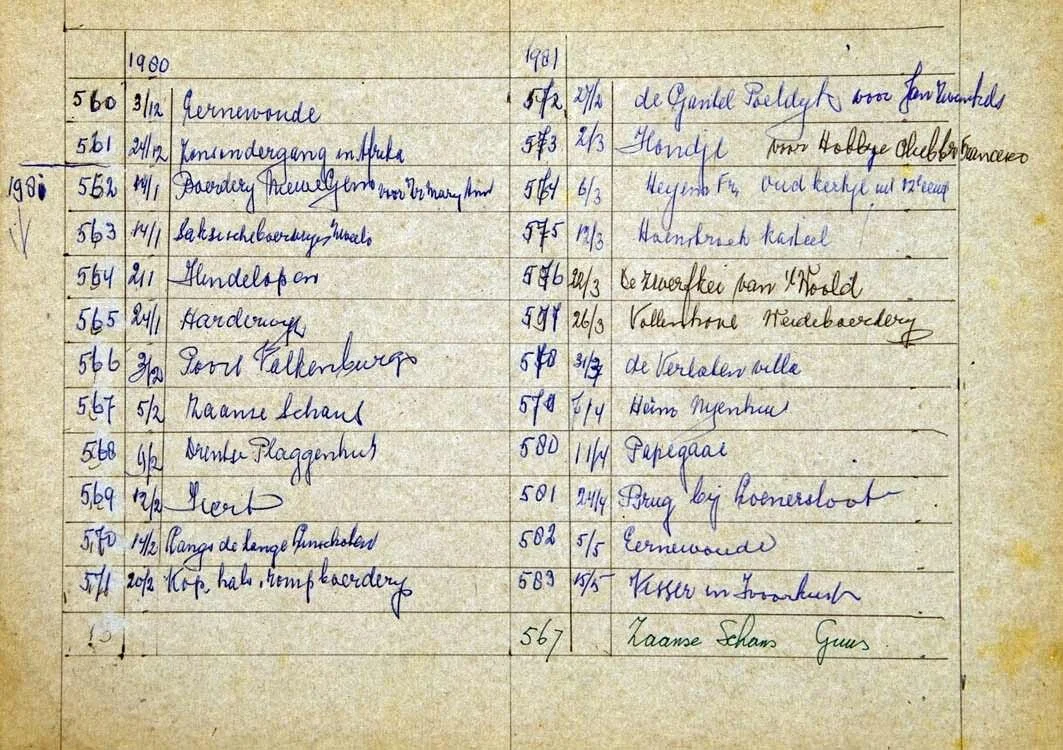 1980
560 3/12 Eernewoude
561 24/12 Zonsondergang in Afrika
1981
562 14/1 Boerdery voor Mary Ann
563 14/1
564 2/1 Hindelopen
565 24/1 Harderwyk
566 3/2 Poort Valkenburg
567 5/2 Zaanse Schans
568 9/2 Drentse Plaggenhut
569 12/2
570 14/2 Langs de lange
571 20/2 Kop, hals, romp boerdery
1981
572 27/2 de Gantel Poeldyk voor Jan
573 2/3 Hondje voor Hobbye club
574 6/3 Heyem Fr, oud kerkje uit 12e eeuw
575 12/3 Hoensbroek kasteel
576 22/3 De Zwerfkei van 't Woold
577 26/3 Vollenhove Weideboerdery
578 31/3 de Verlaten villa
579 7/4 Heino Nyenhuis
580 11/4 Papegaai
581 24/4 Brug bij Loenersloot
582 5/5 Eernewoude
583 15/5 Visser in Ivoorkust
567 Zaanse Schans Guus